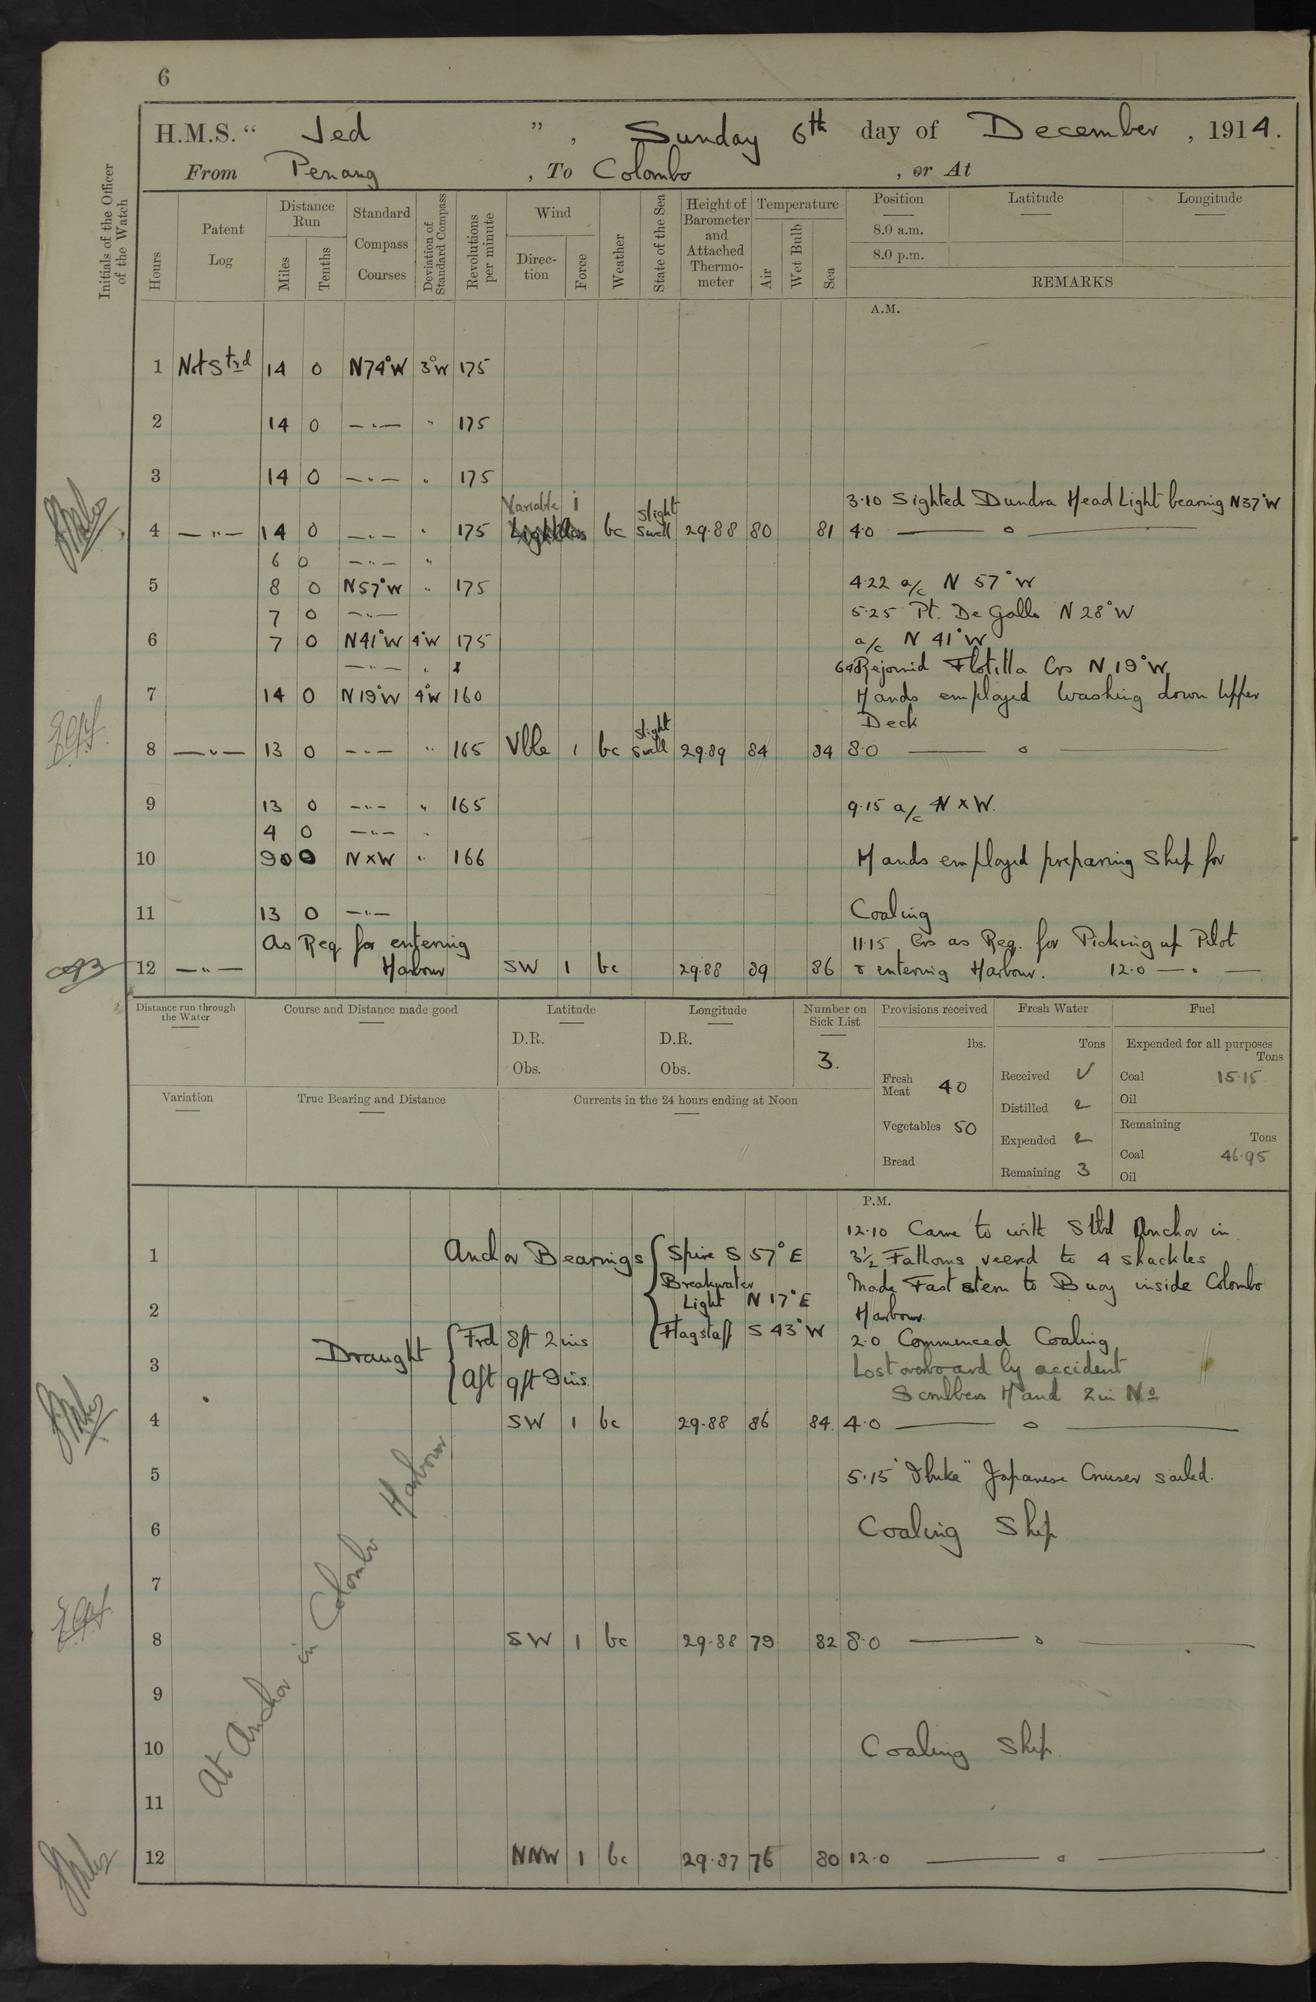 6
H.M.S. “ Jed ” , Sunday 6th day of December , 1914.
From Penang , To Colombo , or At
Initials of the Officer of the Watch
Hours
Patent Log
Distance Run
Miles
Tenths
Standard Compass Courses
Deviation of Standard Compass
Revolutions per minute
Wind
Direction
Force
Weather
State of the Sea
Height of Barometer and Attached Thermometer
Temperature
Air
Wet Bulb
Sea
Position
Latitude
Longitude
8.0 a.m.
8.0 p.m.
REMARKS
A.M.
1 Not Strd 14 0 N74°W 3°W 175
2 14 0 —"— " 175
3 14 0 —"— " 175
Variable 1 slight 3·10 Sighted Dundra Head Light bearing N37°W
4 —"— 14 0 —"— " 175 bc swell 29·88 80 81 4·0 — o —
6 0 —"— "
5 8 0 N57°W " 175 4·22 a/c N 57°W
7 0 —"— 5·25 Pt. De Galle N 28°W
6 7 0 N41°W 4°W 175 a/c N 41°W
—"— " Rejoined Flotilla Crs N 19°W
7 14 0 N19°W 4°W 160 Hands employed washing down Upper
slight Deck
8 —"— 13 0 —"— " 165 Vble 1 bc swell 29·89 84 84 8·0 — o —
9 13 0 —"— " 165 9·15 a/c N x W.
4 0 —"— "
10 9 0 N x W " 166 Hands employed preparing ship for
11 13 0 —"— Coaling
As Req for entering 11·15 Crs as Req. for Picking up Pilot
12 —"— Harbour SW 1 bc 29·88 89 86 & entering Harbour. 12·0 — " —
Distance run through the Water
Course and Distance made good
Latitude
D.R.
Obs.
Longitude
D.R.
Obs.
Number on Sick List
3.
Provisions received
lbs.
Fresh Meat 40
Vegetables 50
Bread
Fresh Water
Tons
Received ✓
Distilled 2
Expended 2
Remaining 3
Fuel
Expended for all purposes
Tons
Coal 15·15
Oil
Remaining
Tons
Coal 46·95
Oil
Variation
True Bearing and Distance
Currents in the 24 hours ending at Noon
P.M.
12·10 Came to with Stbd Anchor in
1 Anchor Bearings { Spire S 57° E 3½ Fathoms veered to 4 shackles
Breakwater Made Fast stern to Buoy inside Colombo
2 Light N 17° E Harbour.
Flagstaff S 43° W 2·0 Commenced Coaling
3 Draught { Frd 8ft 2ins Lost overboard by accident
Aft 9ft 9ins. Scrubbers Hand 2 in No
4 SW 1 bc 29·88 86 84 4·0 — o —
5 5·15 "Ibuki" Japanese Cruiser sailed.
6 Coaling Ship
7
8 SW 1 bc 29·88 79 82 8·0 — o —
9
10 Coaling Ship
11
12 NNW 1 bc 29·87 76 80 12·0 — o —
At Anchor in Colombo Harbour